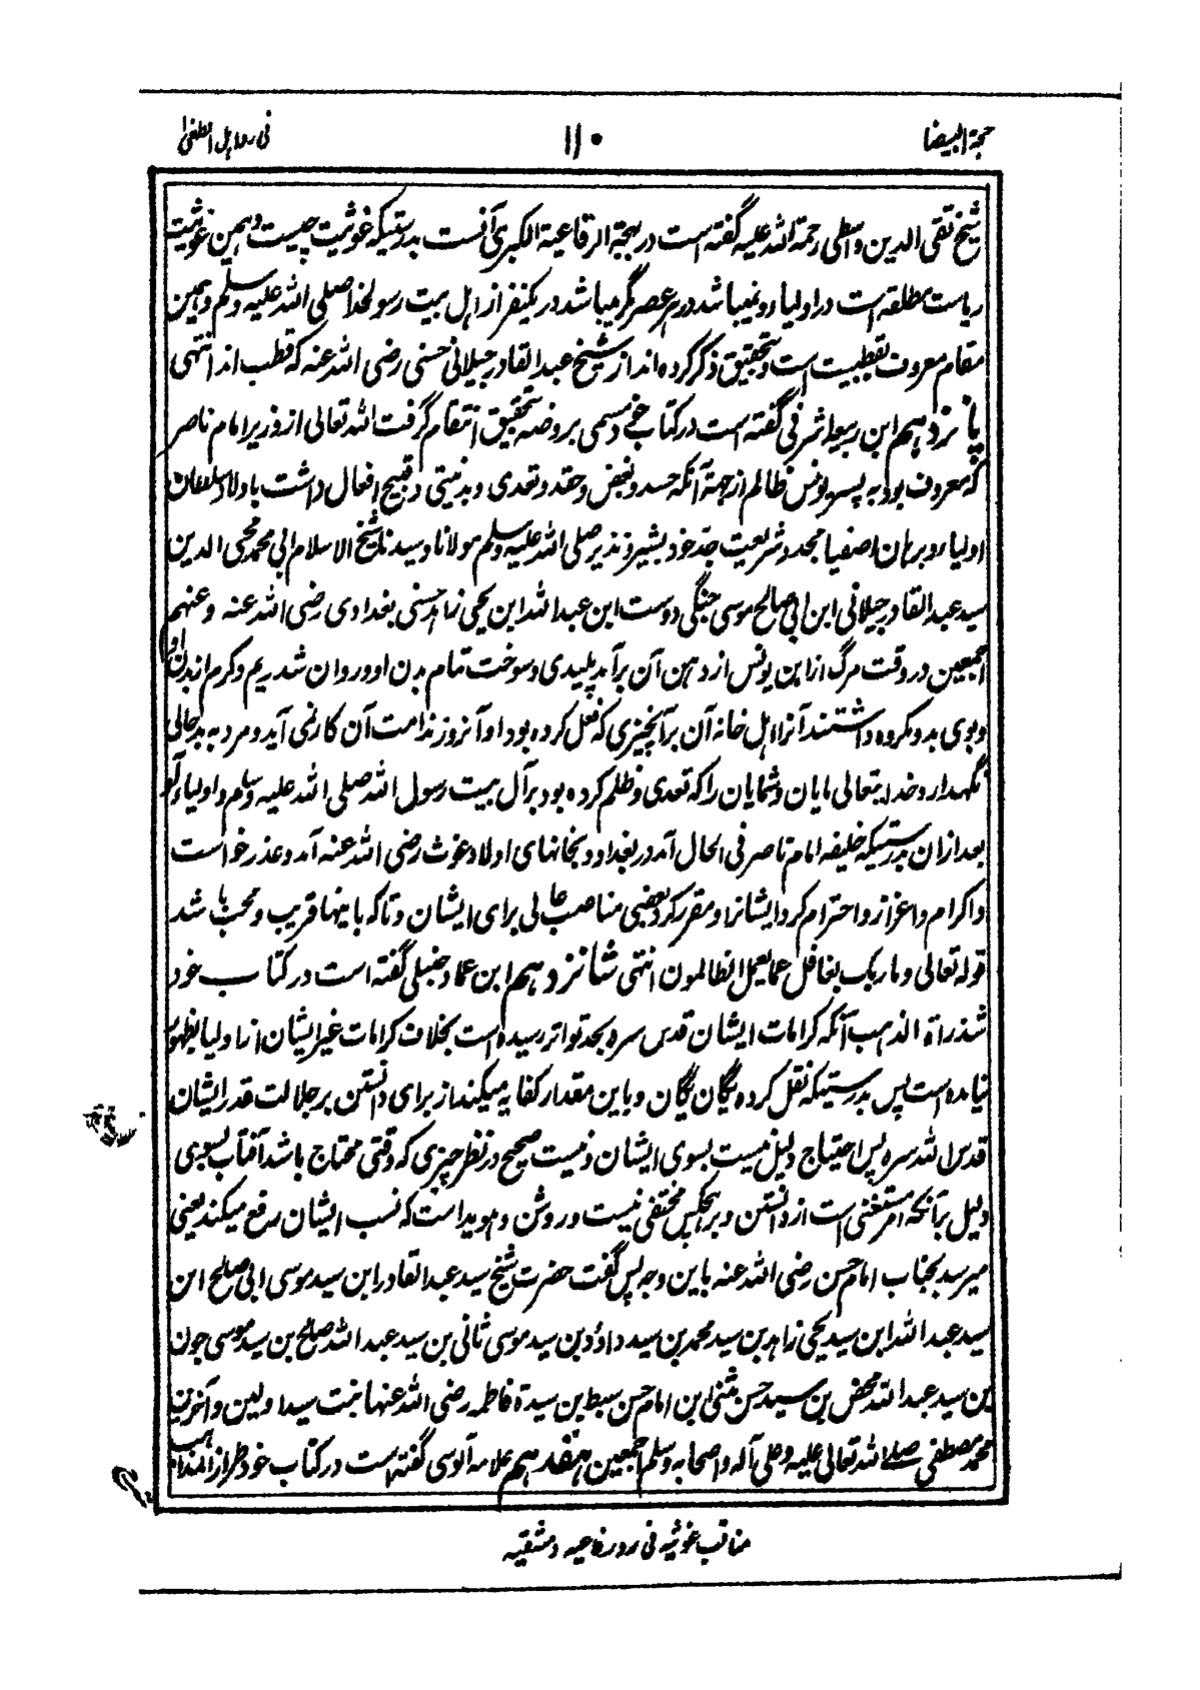 حجة البیضا
۱۱۰
فی رد اهل الطغیٰ
شیخ تقی الدین واسطی رحمة الله علیه گفته است در بهجة الرفاعیة الکبریٰ آنست بدرستیکه غوثیت چیست و همین غوثیت
ریاست مطلقه است در اولیاء و نمیباشد در هر عصر مگر میباشد در یکنفر از اهل بیت رسولخدا صلی الله علیه وسلم و همین
مقام معروف بقطبیت است و بتحقیق ذکر کرده اند از شیخ عبدالقادر جیلانی حسنی رضی الله عنه که قطب اند انتهی
پانزدهم ابن رسول اشرفی گفته است در کتاب خود مسمی بروضه بتحقیق انتقام گرفت الله تعالی از وزیر امام ناصر
که معروف بود به پسر یونس ظالم از جهة آنکه حسد و بغض و حقد و تعدی و بدنیتی و قبیح افعال داشت باولاد سلطان
اولیاء و برهان اصفیا مجدد شریعت جد خود بشیر و نذیر صلی الله علیه وسلم مولانا و سیدنا شیخ الاسلام ابی محمد محی الدین
سید عبدالقادر جیلانی ابن ابی صالح موسی جنگی دوست ابن عبدالله ابن یحیی زاهد حسنی بغدادی رضی الله عنه و عنهم
اجمعین در وقت مرگ از ابن یونس از دهن آن برآمد پلیدی و سوخت تمام بدن او و روان شد ریم و کرم از بدن او
و بوی بد و مکروه داشتند آنرا اهل خانه آن برآنچیزی که فعل کرده بود او آنروز ندامت آن کار نمی آید و مرد به بدحالی
نگهدارد خدایتعالی مایان و شمایان را که تعدی و ظلم کرده بود بر آل بیت رسول الله صلی الله علیه وسلم و اولیاء او
بعد ازان بدرستیکه خلیفه امام ناصر فی الحال آمد در بغداد و بخانهای اولاد غوث رضی الله عنه آمد و عذر خواست
و اکرام و اعزاز و احترام کرد ایشانرا و مقرر کرد بعضی مناصب عالی برای ایشان و تاکه باینها قریب و محب باشد
قوله تعالی و ما ربک بغافل عما یعمل الظالمون انتهی شانزدهم ابن عماد حنبلی گفته است در کتاب خود
شذراة الذهب آنکه کرامات ایشان قدس سره بحد تواتر رسیده است بخلاف کرامات غیر ایشان از اولیا بظهور
نیامده است پس بدرستیکه نقل کرده یگان یگان و باین مقدار کفایه میکند از برای دانستن بر جلالت قدر ایشان
قدس الله سره پس احتیاج دلیل نیست بسوی ایشان و نیست صحیح در نظر چیزی که وقتی محتاج باشد آفتاب بسوی
دلیل برآنکه امر مستغنی است از دانستن و بر هیچکس مختفی نیست و روشن و هویدا است که نسب ایشان رفع میکند یعنی
میرسد بجناب امام حسن رضی الله عنه باین وجه پس گفت حضرت شیخ سید عبدالقادر ابن سید موسی ابی صالح ابن
سید عبدالله ابن سید یحیی زاهد بن سید محمد بن سید داؤد بن سید موسی ثانی بن سید عبدالله صالح بن سید موسی جون
بن سید عبدالله محض بن سید حسن مثنی ابن امام حسن سبط بن سیدة فاطمه رضی الله عنها بنت سید اولین و آخرین
محمد مصطفی صلی الله تعالی علیه و علی آله و اصحابه وسلم اجمعین هفدهم علامه آلوسی گفته است در کتاب خود طراز المذاهب
مناقب غوثیه فی رد رفاعیه دمشقیه